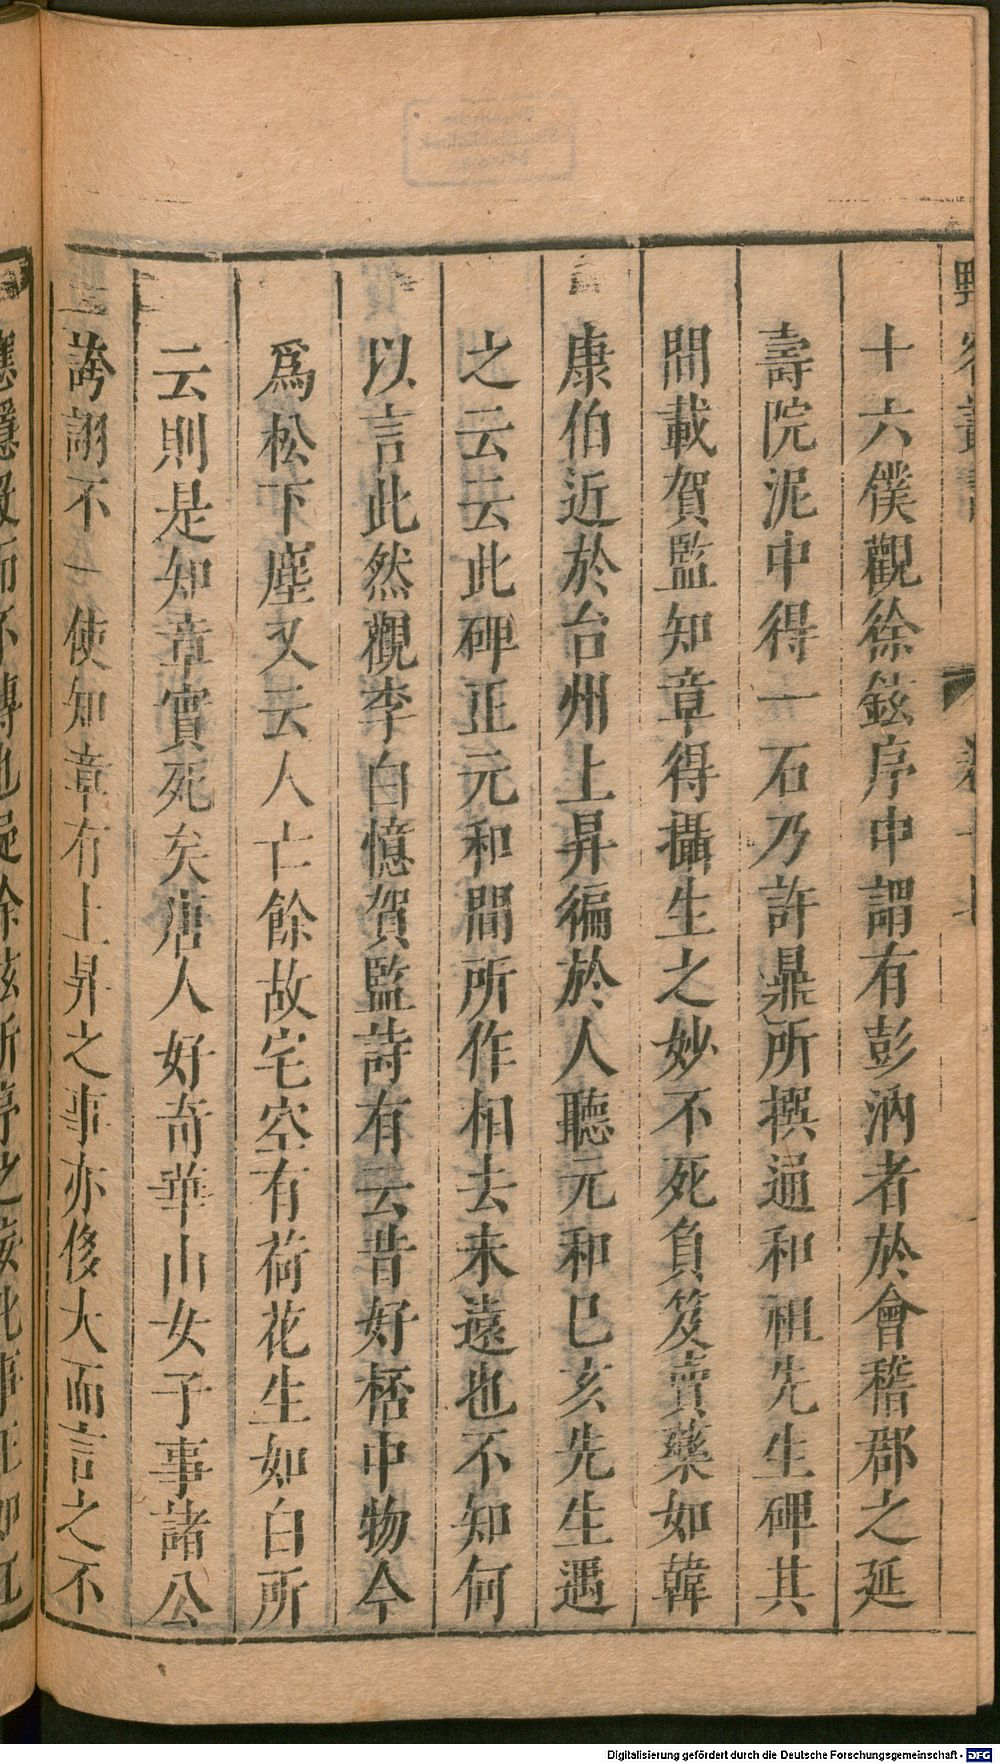 十六僕觀徐鉉序中謂有彭汭者於會稽郡之延
壽院泥中得一石乃許鼎所撰通和祖先生碑其
間載賀監知章得攝生之妙不死負笈賣藥如韓
康伯近於台州上昇徧於人聽元和巳亥先生遇
之云云此碑正元和間所作相去未遠也不知何
以言此然觀李白憶賀監詩有云昔好桮中物今
爲松下塵又云人亡餘故宅空有荷花生如白所
云則是知章實死矣唐人好奇華山女子事諸公
誇詡不一使知章有上昇之事亦侈大而言之不
Digitalisierung gefördert durch die Deutsche Forschungsgemeinschaft - DFG